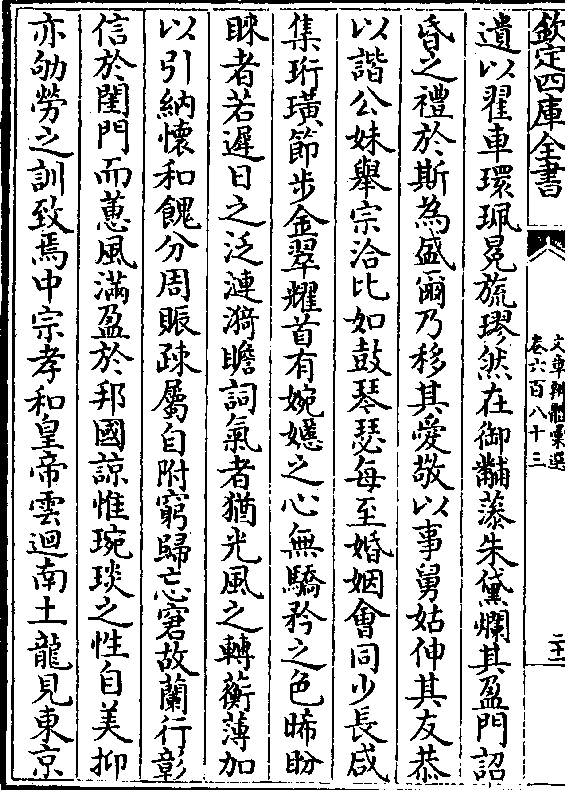 欽定四庫全書
文章辨體彙選
卷六百八十三
二十二
遺以翟車環珮冕旒璆然在御黼䓾朱黛爛其盈門詔
昏之禮於斯為盛爾乃移其愛敬以事舅姑伸其友恭
以諧公妹舉宗洽比如鼓琴瑟每至婚姻會同少長咸
集珩璜節步金翠耀首有婉嫕之心無驕矜之色晞盼
睞者若遲日之泛漣漪瞻詞氣者猶光風之轉蘅薄加
以引納懷和餽分周賑疎屬自附窮歸忘窘故蘭行彰
信於閨門而蕙風滿盈於邦國諒惟琬琰之性自美抑
亦劬勞之訓致焉中宗孝和皇帝雲迴南土龍見東京